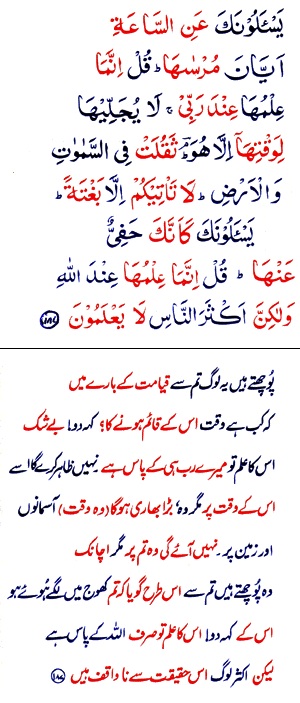 يَسْـَٔلُوْنَكَ عَنِ السَّاعَةِ
اَيَّانَ مُرْسٰىهَا ؕ قُلْ اِنَّمَا
عِلْمُهَا عِنْدَ رَبِّيْ ۚ لَا يُجَلِّيْهَا
لِوَقْتِهَاۤ اِلَّا هُوَ ؔۘ ثَقُلَتْ فِي السَّمٰوٰتِ
وَالْاَرْضِ ؕ لَا تَاْتِيْكُمْ اِلَّا بَغْتَةً ؕ
يَسْـَٔلُوْنَكَ كَاَنَّكَ حَفِيٌّ
عَنْهَا ؕ قُلْ اِنَّمَا عِلْمُهَا عِنْدَ اللّٰهِ
وَلٰكِنَّ اَكْثَرَ النَّاسِ لَا يَعْلَمُوْنَ ﴿۱۸۷﴾
پُوچھتے ہیں یہ لوگ تم سے قیامت کے بارے میں
کہ کب ہے وقت اس کے قائم ہونے کا؟ کہہ دو! بے شک
اس کا علم تو میرے رب ہی کے پاس ہے نہیں ظاہر کرے گا اسے
اس کے وقت پر مگر وہ، بڑا بھاری ہوگا (وہ وقت) آسمانوں
اور زمین پر۔ نہیں آئے گی وہ تم پر مگر اچانک
وہ پُوچھتے ہیں تم سے اس طرح گویا کہ تم کھوج میں لگے ہُوئے ہو
اس کے کہہ دو! اس کا علم تو صرف اللہ کے پاس ہے
لیکن اکثر لوگ اس حقیقت سے ناواقف ہیں ﴿۱۸۷﴾